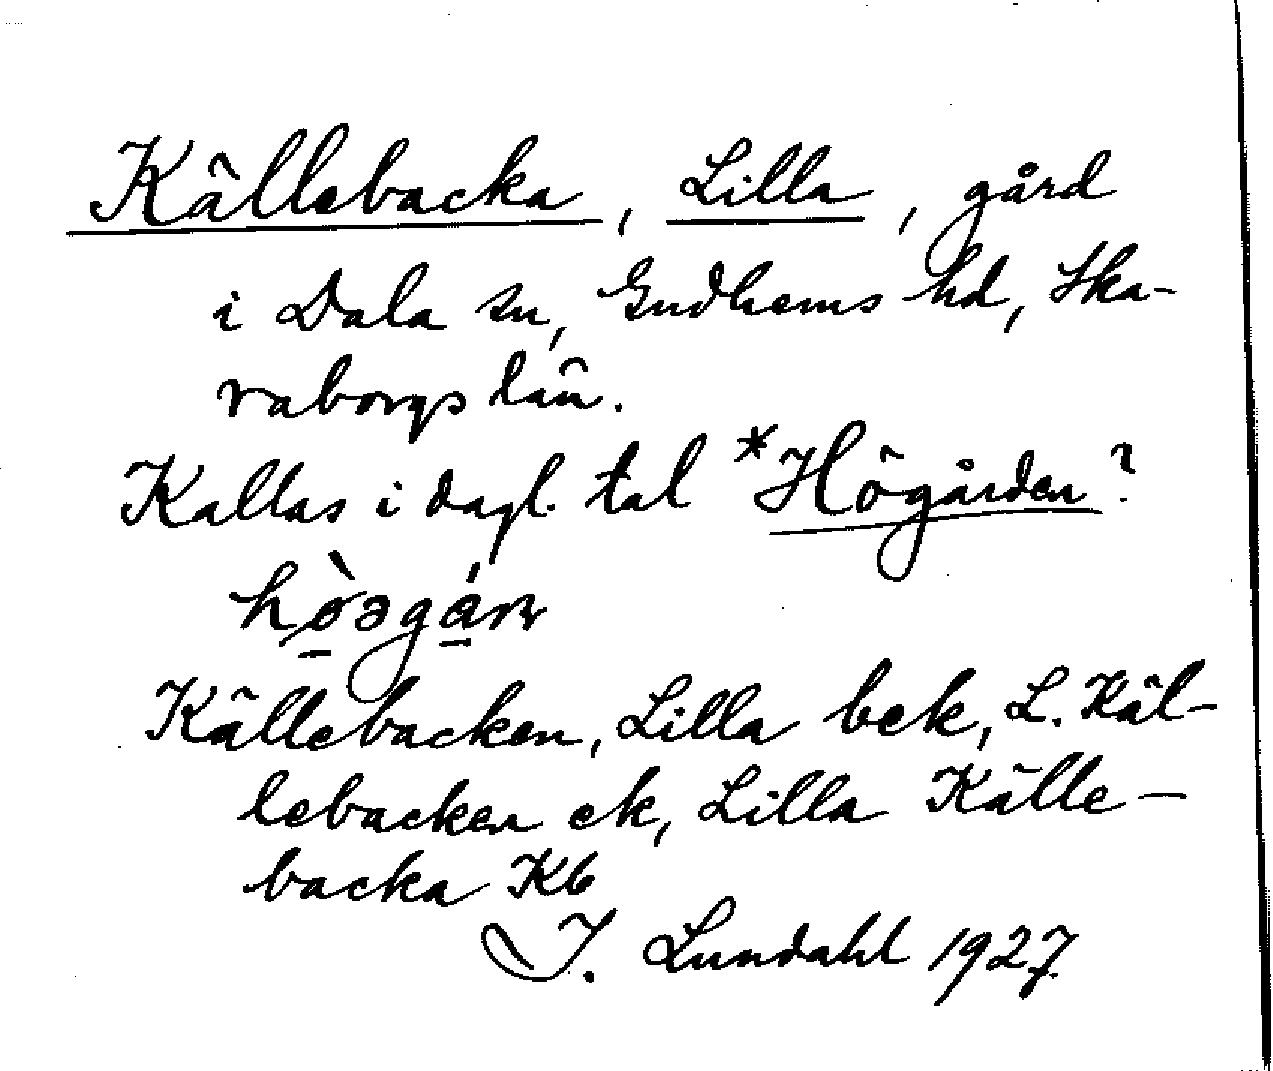 Källebacka, Lilla, gård
i Dala sn, Gudhems hd, Ska-
raborgs län.
Kallas i dagl. tal *Högården?
Källebacken, Lilla bek, L. Käl-
lebacken ek, Lilla Källe-
backa Kb
I. Lundahl 1927